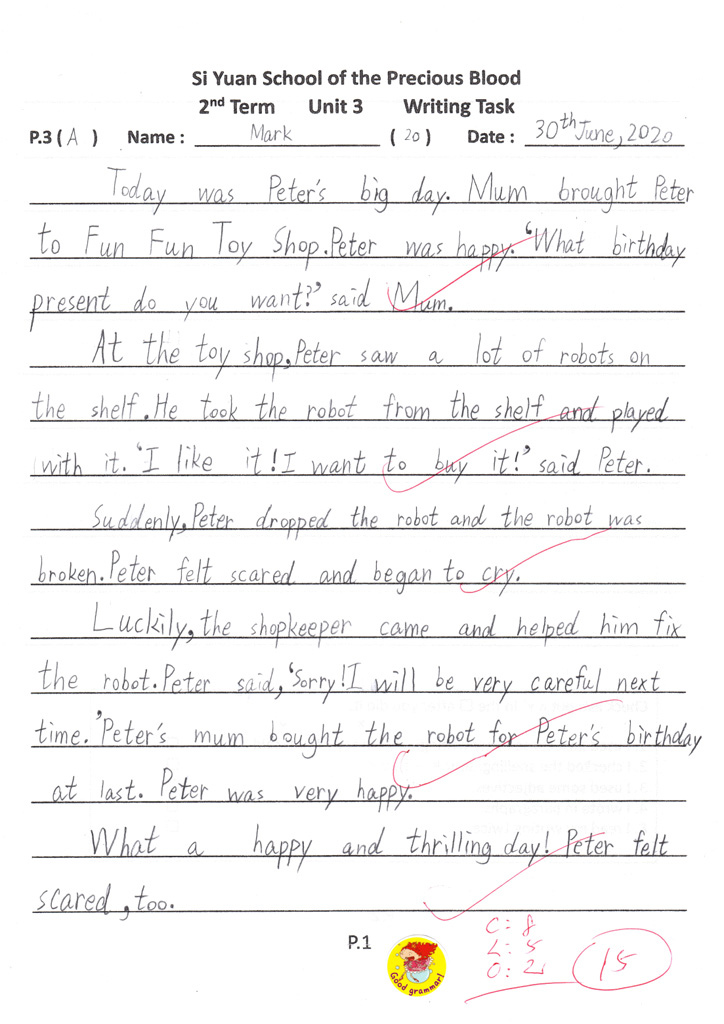 Si Yuan School of the Precious Blood
2nd Term Unit 3 Writing Task
P.3 ( A ) Name : Mark ( 20 ) Date : 30th June, 2020
Today was Peter's big day. Mum brought Peter
to Fun Fun Toy Shop. Peter was happy. 'What birthday
present do you want?' said Mum.
At the toy shop, Peter saw a lot of robots on
the shelf. He took the robot from the shelf and played
with it. 'I like it! I want to buy it!' said Peter.
Suddenly, Peter dropped the robot and the robot was
broken. Peter felt scared and began to cry.
Luckily, the shopkeeper came and helped him fix
the robot. Peter said, 'Sorry! I will be very careful next
time.' Peter's mum bought the robot for Peter's birthday
at last. Peter was very happy.
What a happy and thrilling day! Peter felt
scared, too.
P.1
Good grammar!
C: 8
L: 5
O: 2
15